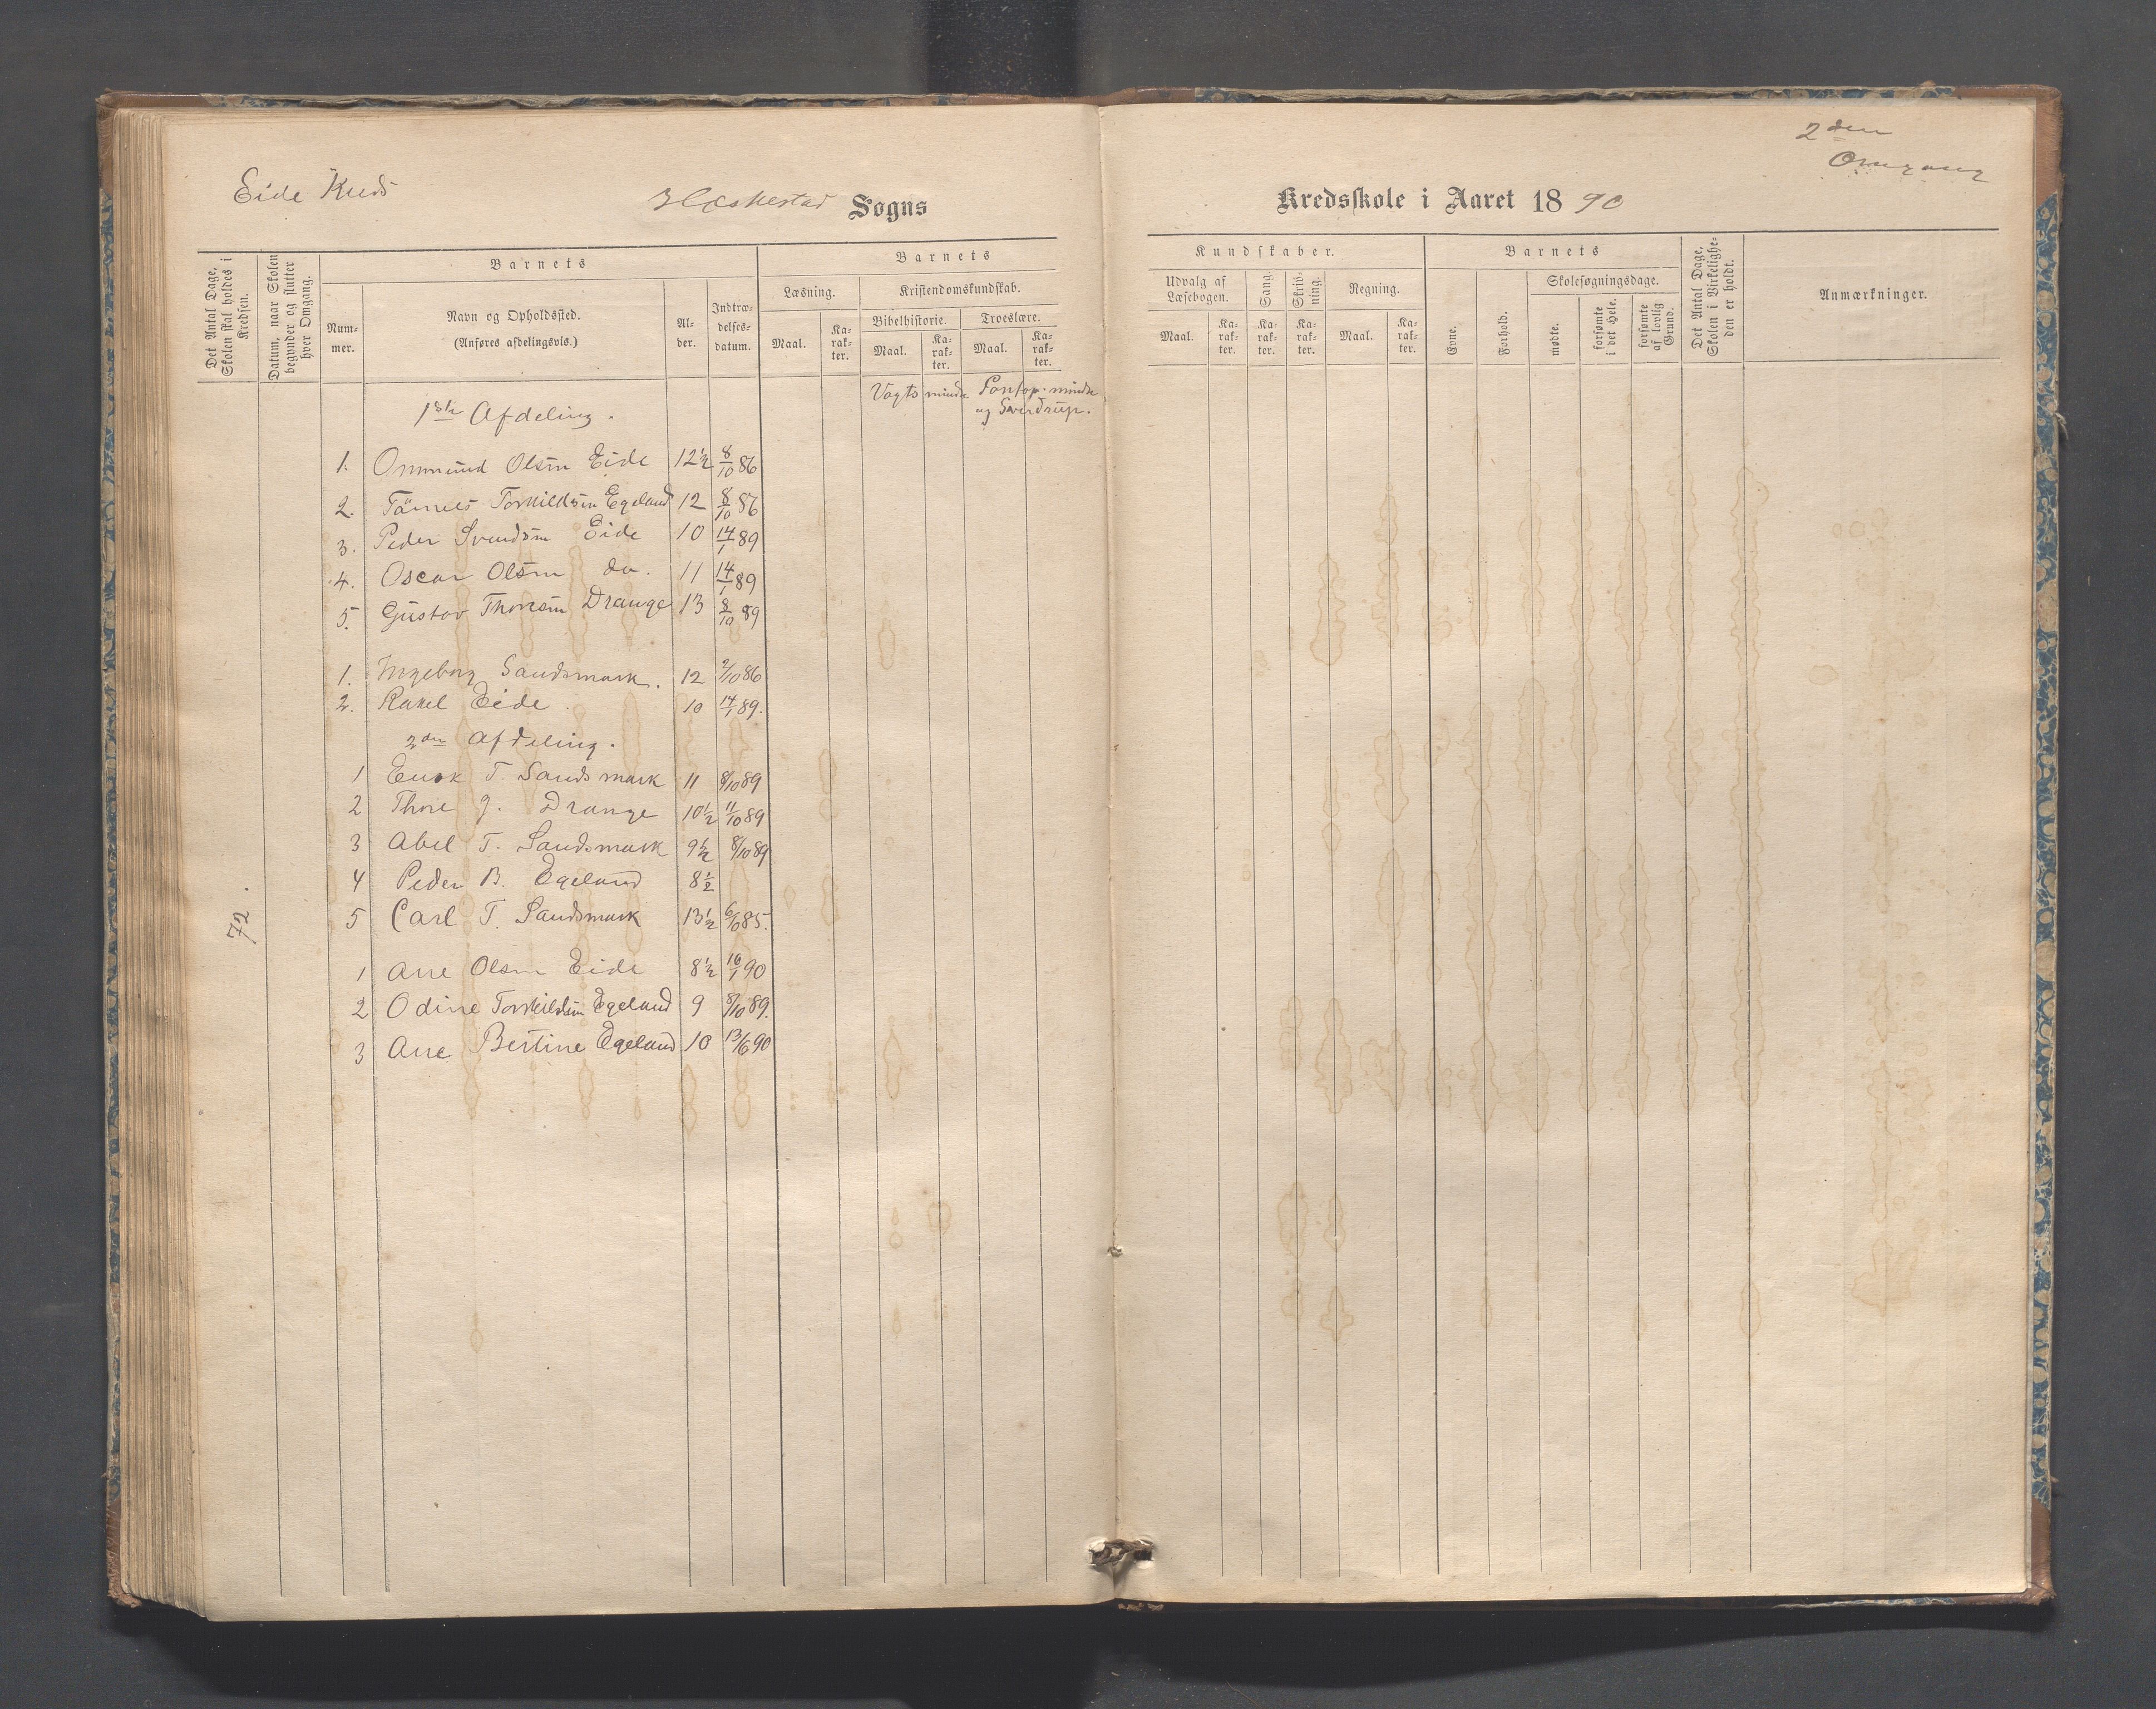 2den
Omgang
Eide Kreds
Heskestad Sogns
Kredsskole i Aaret 1890
Det Antal Dage, Skolen skal holdes i Kredsen.
Datum, naar Skolen begynder og slutter hver Omgang.
Barnets
Nummer.
Navn og Opholdssted.
(Anføres afdelingsvis.)
Alder.
Indtrædelsesdatum.
Barnets
Læsning.
Maal.
Karakter.
Kristendomskundskab.
Bibelhistorie.
Maal.
Karakter.
Troeslære.
Maal.
Karakter.
Kundskaber.
Udvalg af Læsebogen.
Maal.
Karakter.
Sang.
Karakter.
Skrivning.
Karakter.
Regning.
Maal.
Karakter.
Barnets
Evne.
Forhold.
Skolesøgningsdage.
mødte.
forsømte i det Hele.
forsømte af lovlig Grund.
Det Antal Dage, Skolen i Virkeligheden er holdt.
Anmærkninger.
Vogts mindre
Pontop. mindre
og Sverdrup.
1ste Afdeling.
1. Ommund Olsen Eide 12½ 8/10 86
2. Tønnes Torkildsen Egeland 12 8/10 86
3. Peder Svendsen Eide 10 14/1 89
4. Oscar Olsen do. 11 14/1 89
5. Gustav Thorsen Drange 13 8/10 89
1. Ingeborg Sandsmark. 12 2/10 86
2. Rakel Eide. 10 14/1 89.
2den Afdeling.
1 Enok T. Sandsmark 11 8/10 89
2 Thore J. Drange 10½ 11/10 89
3 Abel T. Sandsmark 9½ 8/10 89
4 Peder B. Egeland 8½
5 Carl T. Sandsmark 13½ 6/10 85.
72.
1 Ane Olsen Eide 8½ 16/1 90
2 Odine Torkildsen Egeland 9 8/10 89.
3 Ane Bertine Egeland 10 13/6 90